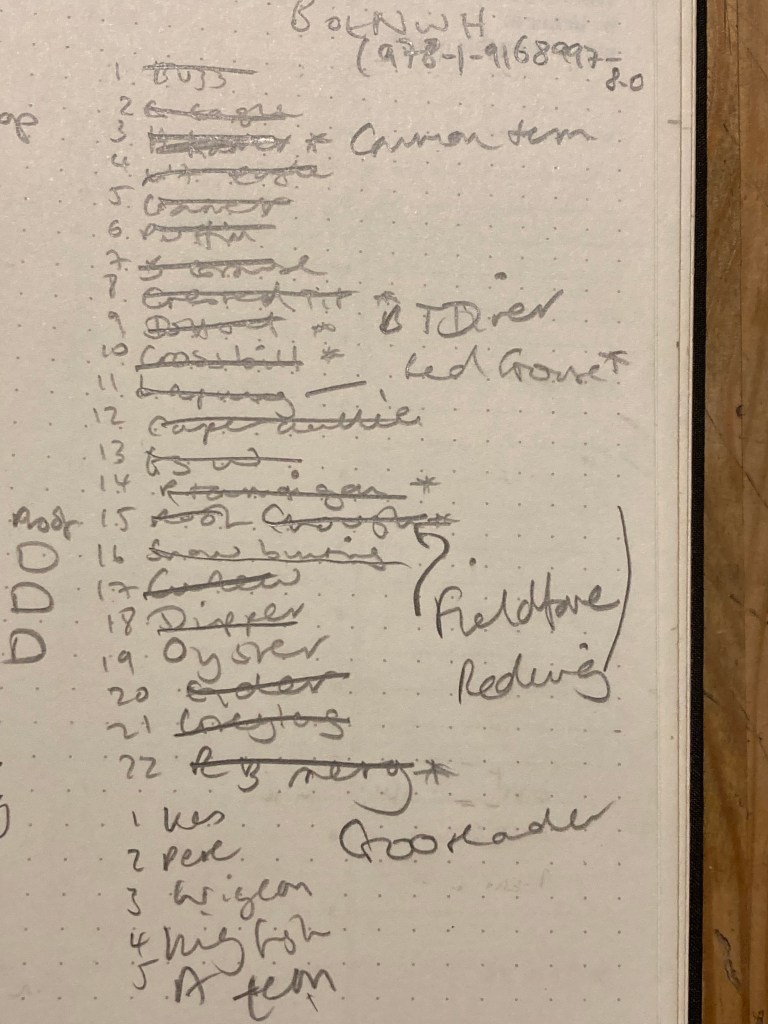 BotNWH
(978-1-9168997-
8-0
1 Buzz
2 G eagle
3 * Common tern
4 Wt eagle
5 Gannet
6 Puffin
7 B Grouse
8 Crested Tit *
9 Dotterel *
BTDiver
10 Crossbill *
Red Grouse*
11 Lapwing —
12 Capercaillie
13 GSW
14 Ptarmigan *
15 Chough*
16 Snow bunting
17 Curlew
Fieldfare
18 Dipper
19 Oyster
Redwing
20 Eider
21 Greylag
22 RB merg *
1 Kes
Goosander
2 Pere
3 Wigeon
4 Kingfish
5 A tern